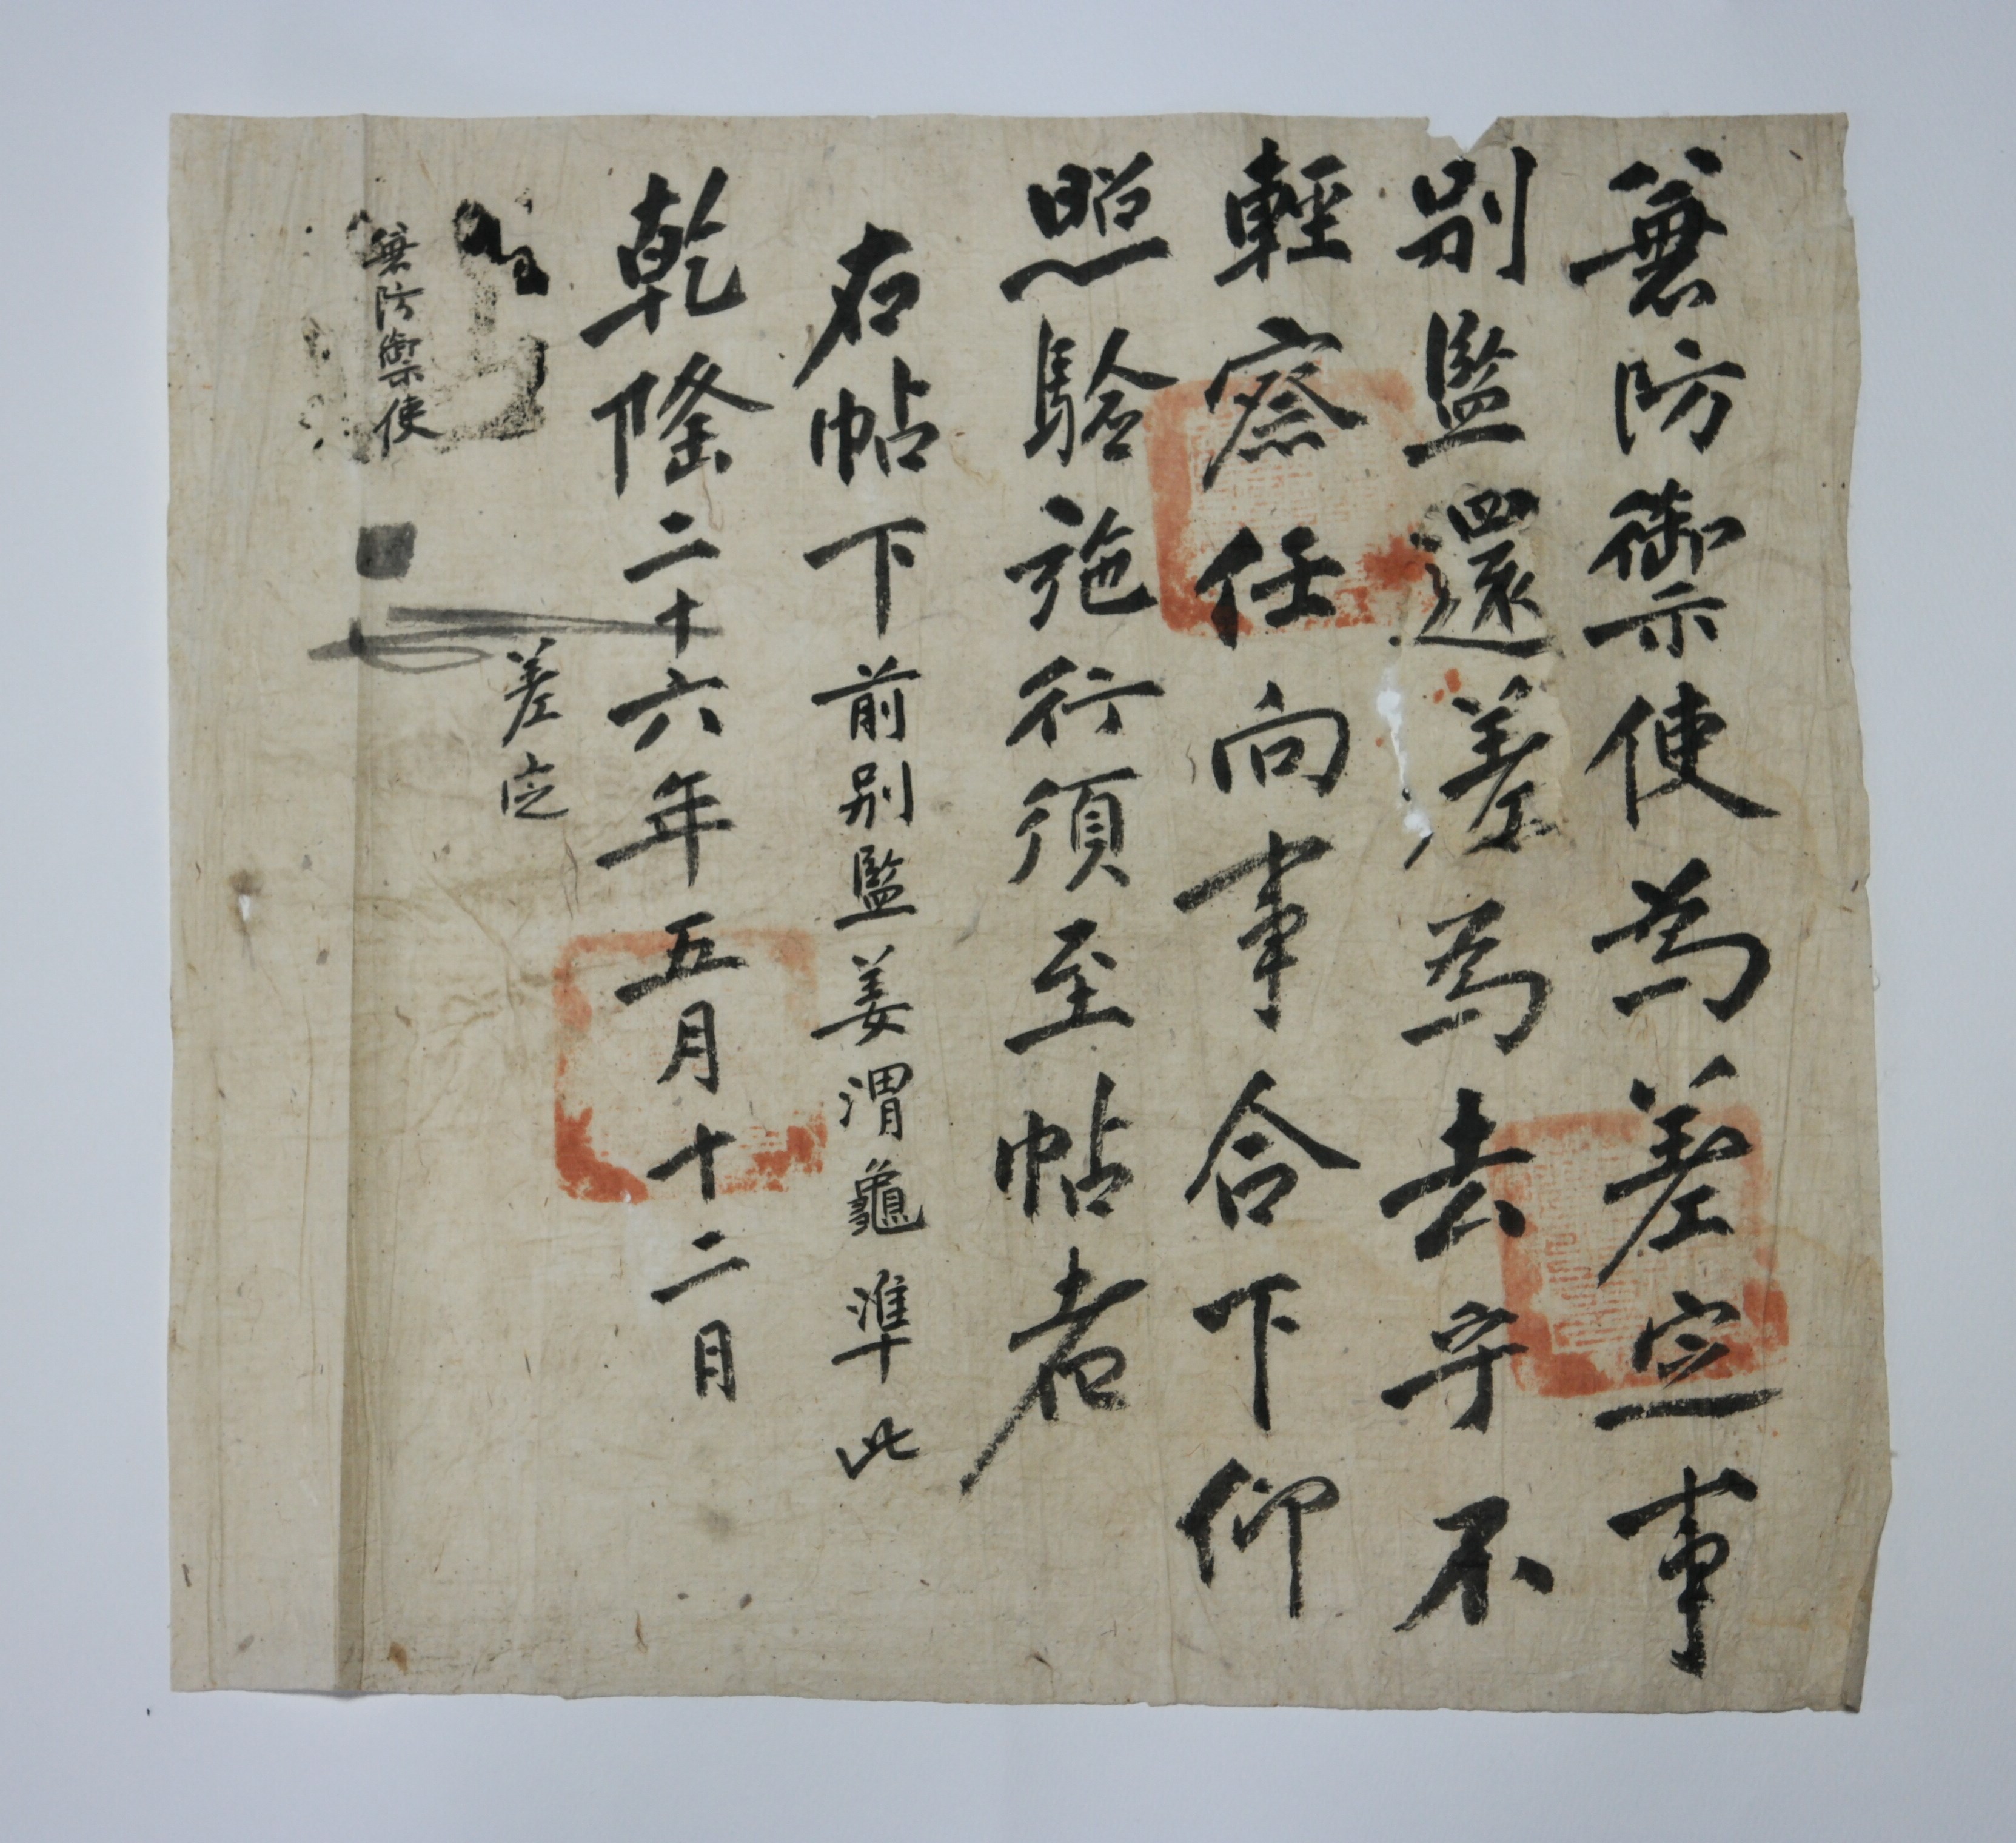 兼防禦使爲差定事
別監還差爲去乎不
輕察任向事合下仰
照驗施行須至帖者
右帖下前別監姜渭龜準此
乾隆二十六年五月十二日
差定
兼防禦使